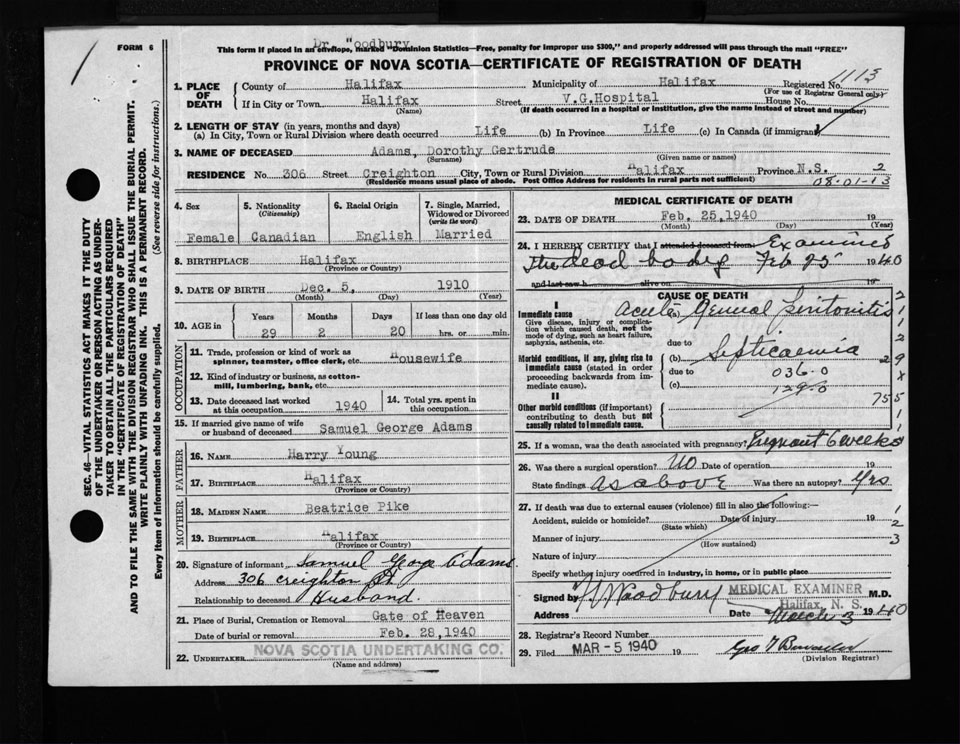 FORM 6
Dr. Woodbury
This form if placed in an envelope, marked "Dominion Statistics—Free, penalty for improper use $300," and properly addressed will pass through the mail "FREE"
PROVINCE OF NOVA SCOTIA—CERTIFICATE OF REGISTRATION OF DEATH
SEC. 46—VITAL STATISTICS ACT MAKES IT THE DUTY
OF THE UNDERTAKER OR PERSON ACTING AS UNDER-
TAKER TO OBTAIN ALL THE PARTICULARS REQUIRED
IN THE "CERTIFICATE OF REGISTRATION OF DEATH"
AND TO FILE THE SAME WITH THE DIVISION REGISTRAR WHO SHALL ISSUE THE BURIAL PERMIT.
WRITE PLAINLY WITH UNFADING INK. THIS IS A PERMANENT RECORD.
Every item of information should be carefully supplied. (See reverse side for instructions.)
1. PLACE OF DEATH
County of Halifax Municipality of Halifax Registered No. 1113
(For use of Registrar General only)
If in City or Town Halifax Street V.G.Hospital House No.
(Name) (If death occurred in a hospital or institution, give the name instead of street and number)
2. LENGTH OF STAY (in years, months and days)
(a) In City, Town or Rural Division where death occurred Life (b) In Province Life (c) In Canada (if immigrant)
3. NAME OF DECEASED Adams, Dorothy Gertrude
(Surname) (Given name or names)
RESIDENCE No. 306 Street Creighton City, Town or Rural Division Halifax Province N.S. 2
(Residence means usual place of abode. Post Office Address for residents in rural parts not sufficient) 08-01-13
4. Sex
Female
5. Nationality
(Citizenship)
Canadian
6. Racial Origin
English
7. Single, Married,
Widowed or Divorced
(write the word)
Married
8. BIRTHPLACE Halifax
(Province or Country)
9. DATE OF BIRTH Dec. 5, 1910
(Month) (Day) (Year)
10. AGE in
Years Months Days If less than one day old
29 2 20 hrs. or min.
OCCUPATION
11. Trade, profession or kind of work as
spinner, teamster, office clerk, etc. Housewife
12. Kind of industry or business, as cotton-
mill, lumbering, bank, etc.
13. Date deceased last worked
at this occupation 1940
14. Total yrs. spent in
this occupation
15. If married give name of wife
or husband of deceased Samuel George Adams
FATHER
16. NAME Harry Young
17. BIRTHPLACE Halifax
(Province or Country)
MOTHER
18. MAIDEN NAME Beatrice Pike
19. BIRTHPLACE Halifax
(Province or Country)
20. Signature of informant Samuel George Adams
Address 306 Creighton St.
Relationship to deceased Husband.
21. Place of Burial, Cremation or Removal Gate of Heaven
Date of burial or removal Feb. 28, 1940
22. UNDERTAKER NOVA SCOTIA UNDERTAKING CO.
(Name and address)
MEDICAL CERTIFICATE OF DEATH
23. DATE OF DEATH Feb. 25, 1940 19
(Month) (Day) (Year)
24. I HEREBY CERTIFY that I attended deceased from: Examined
The dead body Feb 25 1940
and last saw h alive on 19
CAUSE OF DEATH
I
Immediate cause
Give disease, injury or complica-
tion which caused death, not the
mode of dying, such as heart failure,
asphyxia, asthenia, etc.
Acute General Peritonitis
due to
Morbid conditions, if any, giving rise to
immediate cause (stated in order
proceeding backwards from im-
mediate cause).
(b) Septicaemia
due to 036-0
(c) 129-0
755
II
Other morbid conditions (if important)
contributing to death but not
causally related to immediate cause.
25. If a woman, was the death associated with pregnancy? Pregnant 6 weeks
26. Was there a surgical operation? No Date of operation 19
State findings As above Was there an autopsy? Yes
27. If death was due to external causes (violence) fill in also the following:
Accident, suicide or homicide? Date of injury 19
(State which)
Manner of injury
(How sustained)
Nature of injury
Specify whether injury occurred in industry, in home, or in public place
Signed by Woodbury MEDICAL EXAMINER M.D.
Halifax, N. S.
Address Date March 3 1940
28. Registrar's Record Number
29. Filed MAR - 5 1940 19
(Division Registrar)